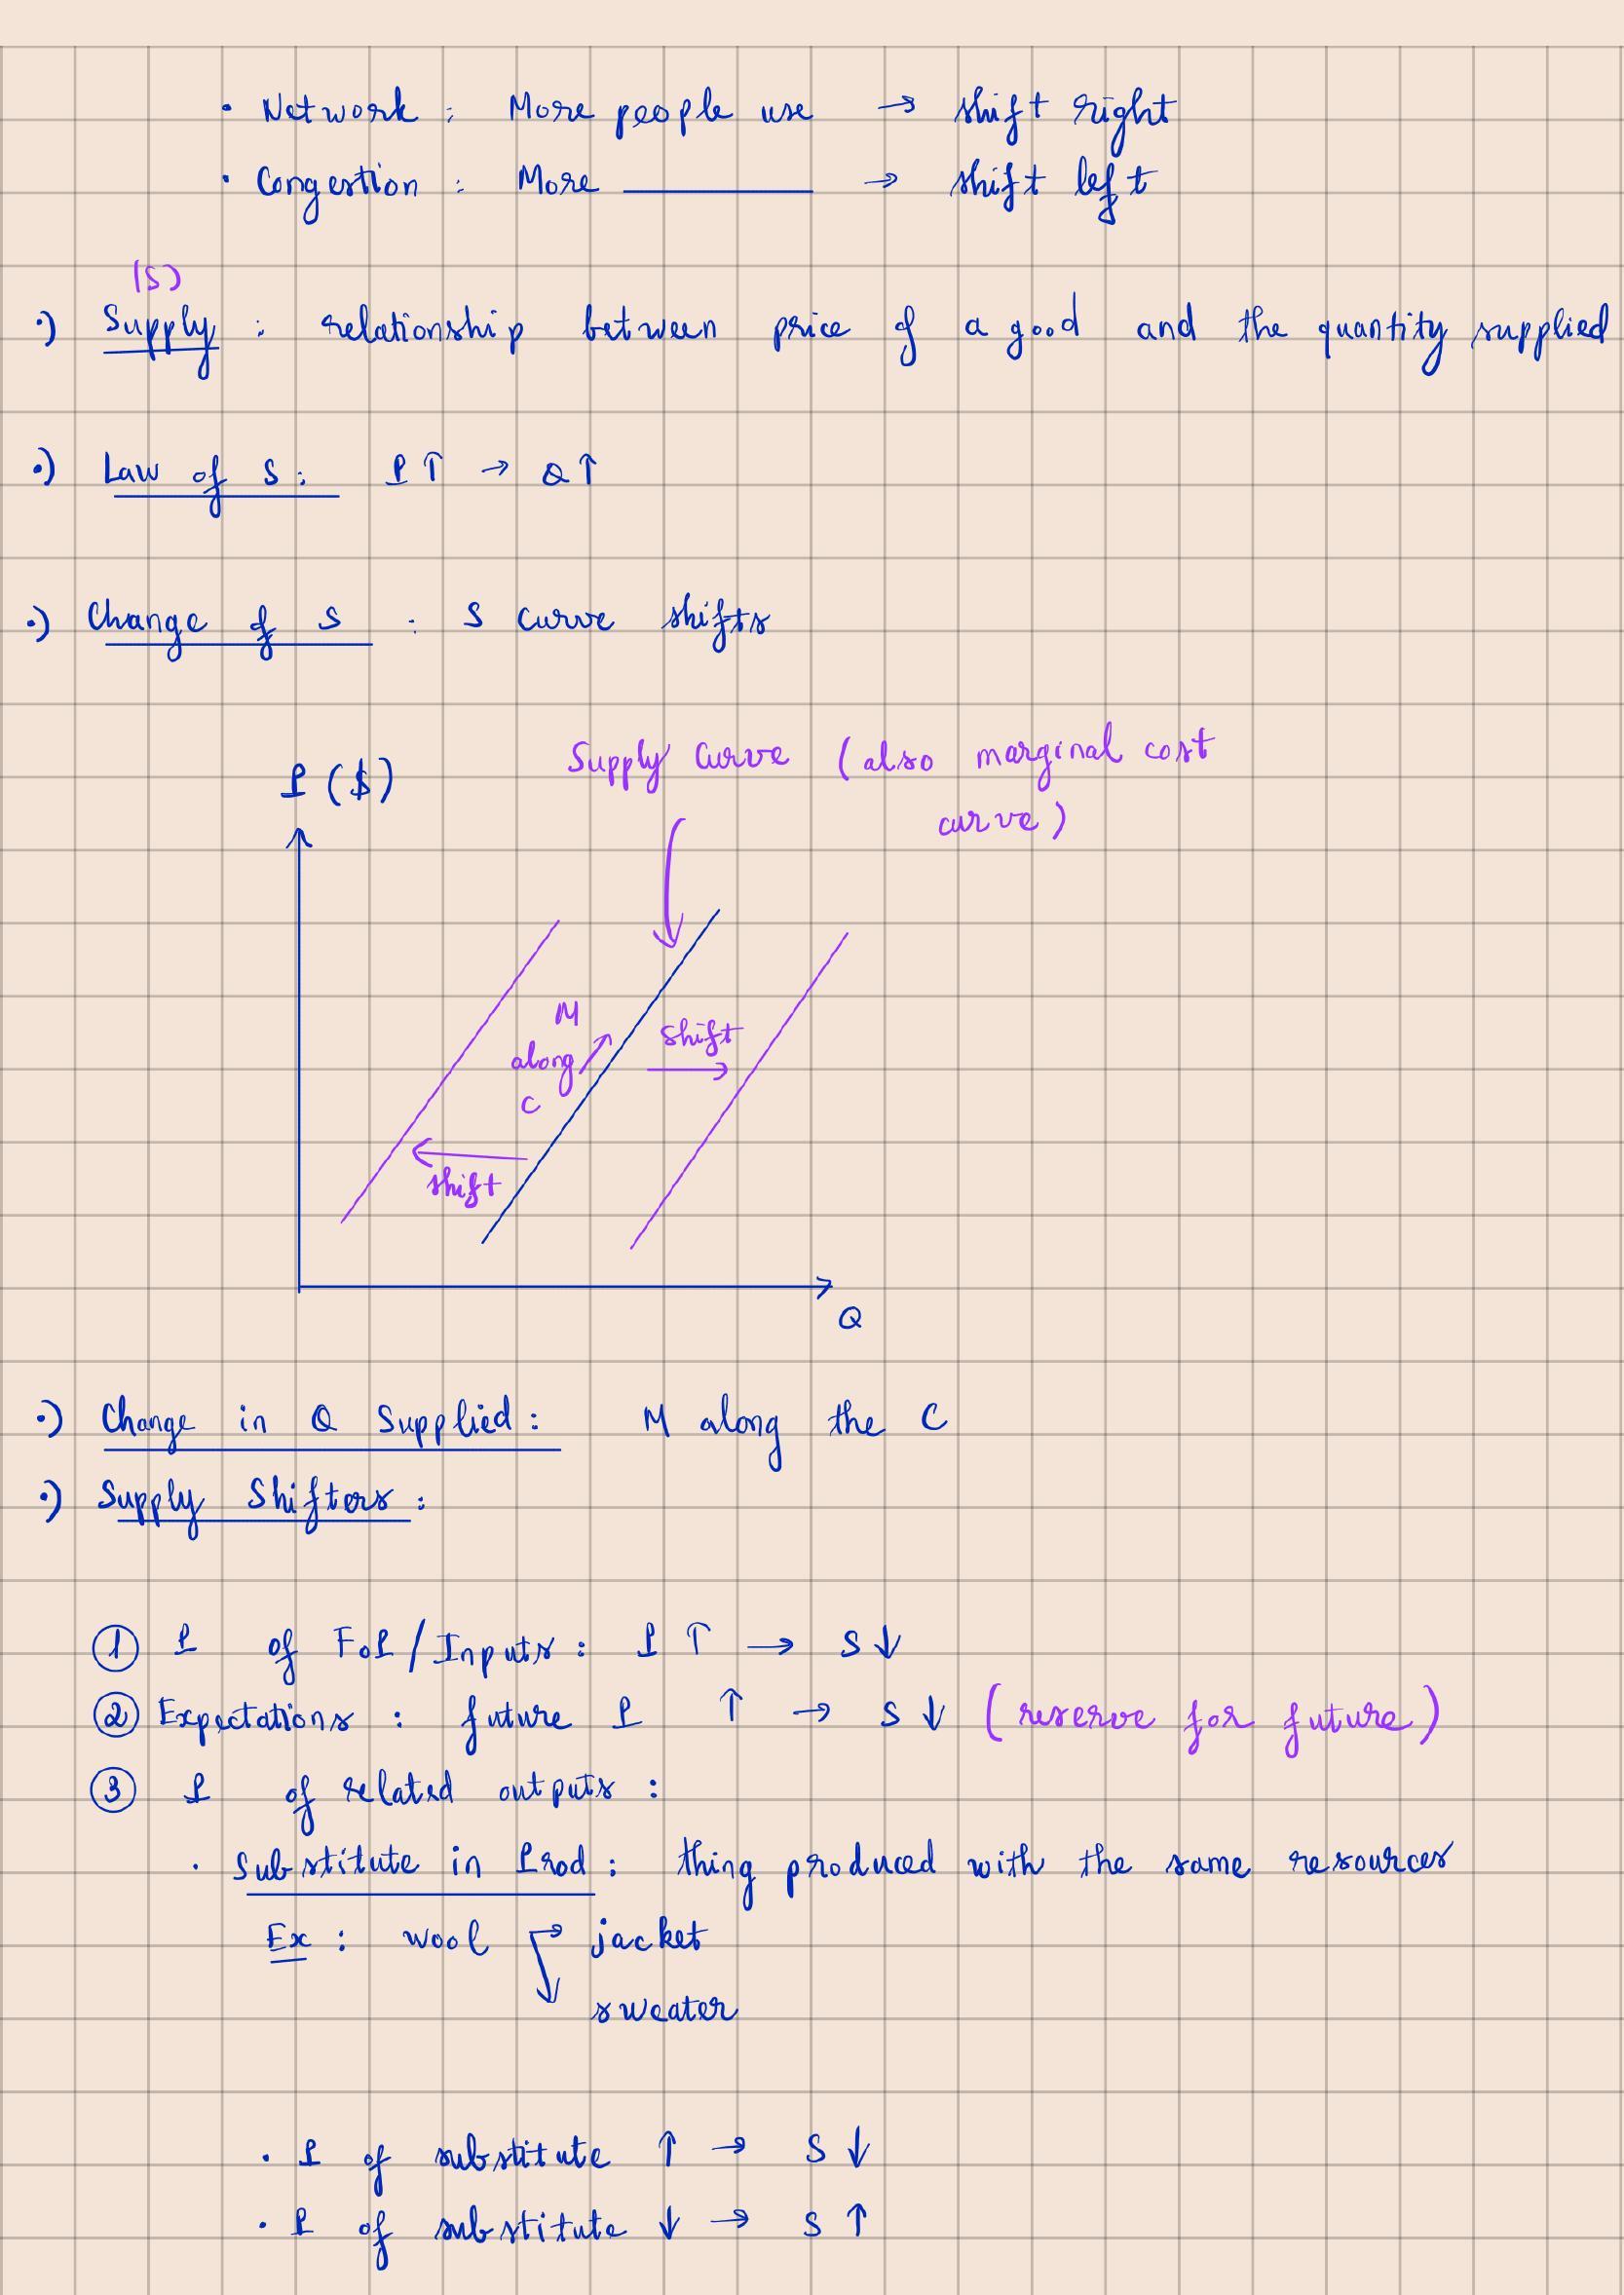 • Network : More people use → shift right
• Congestion : More ______ → shift left
(S)
•) Supply : relationship between price of a good and the quantity supplied
•) Law of S : P ↑ → Q ↑
•) Change of S : S curve shifts
Supply Curve (also marginal cost
curve)
P ($)
M
along
C
shift
shift
Q
•) Change in Q Supplied : M along the C
•) Supply Shifters :
① P of FoP/Inputs : P ↑ → S ↓
② Expectations : future P ↑ → S ↓ (reserve for future)
③ P of related outputs :
• Substitute in Prod : thing produced with the same resources
Ex : wool → jacket
↘ sweater
• P of substitute ↑ → S ↓
• P of substitute ↓ → S ↑